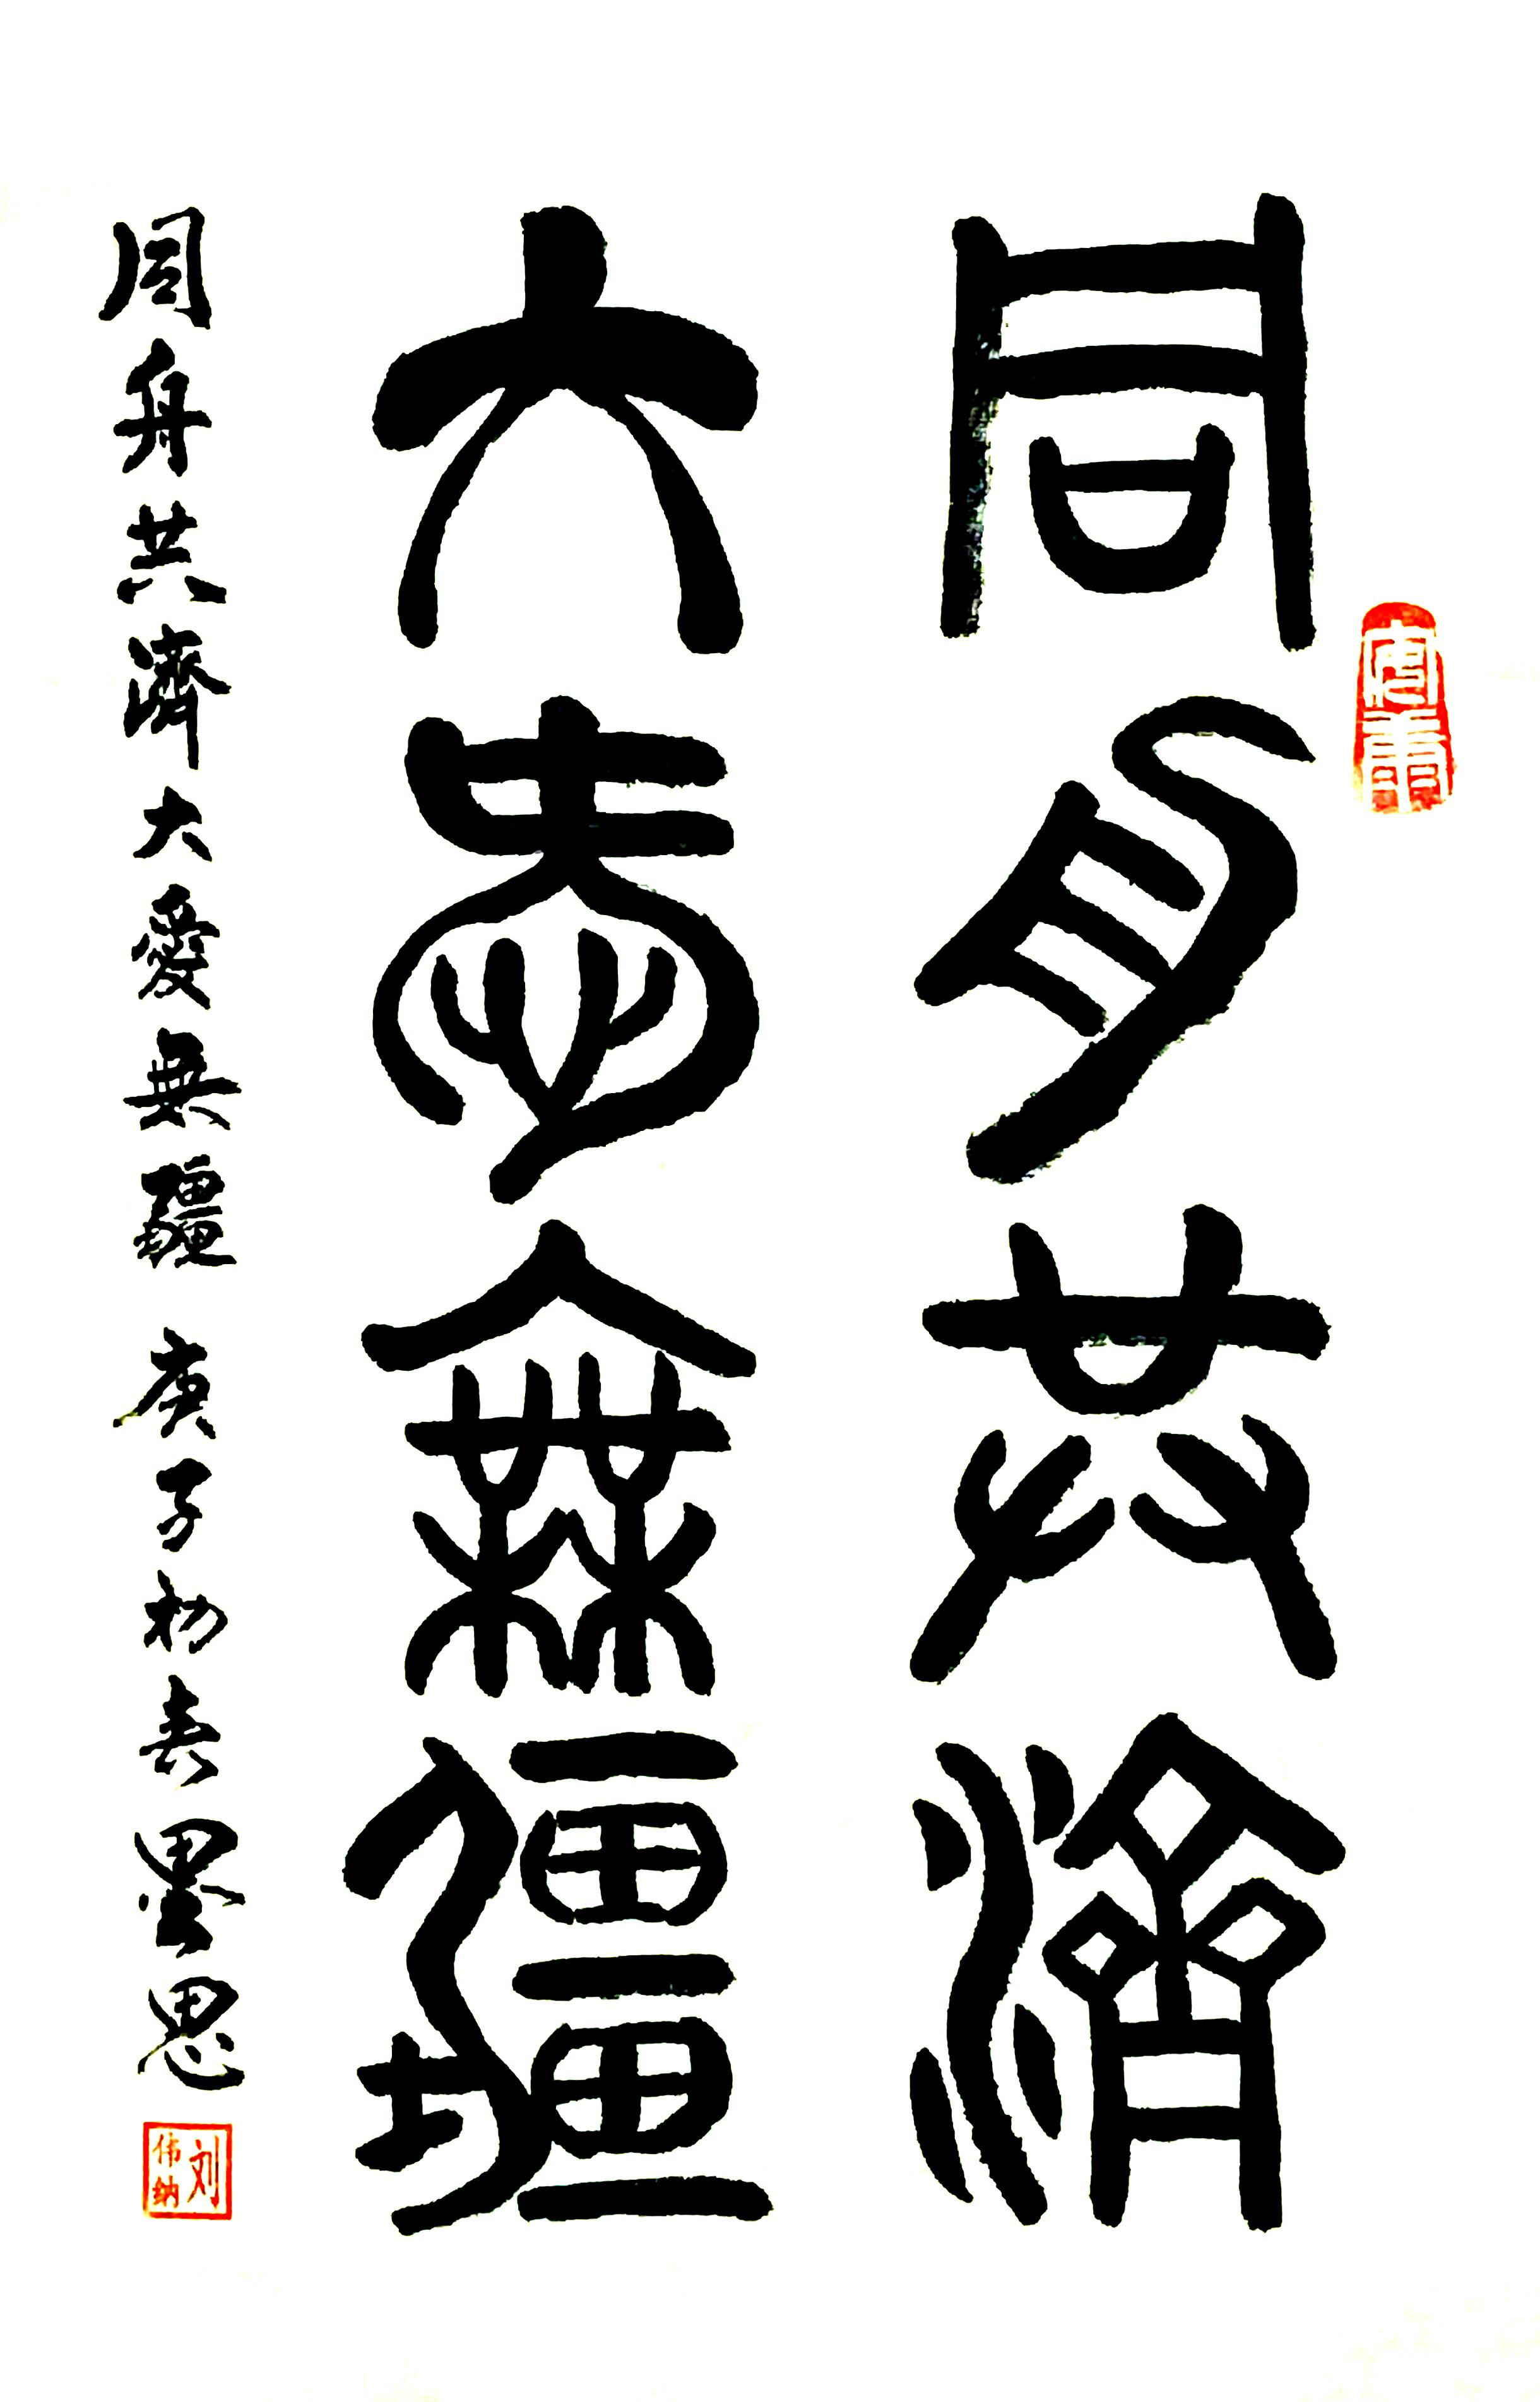 同舟共濟
大愛無疆
同舟共濟大愛無疆 庚子初春墨思
刘伟纳